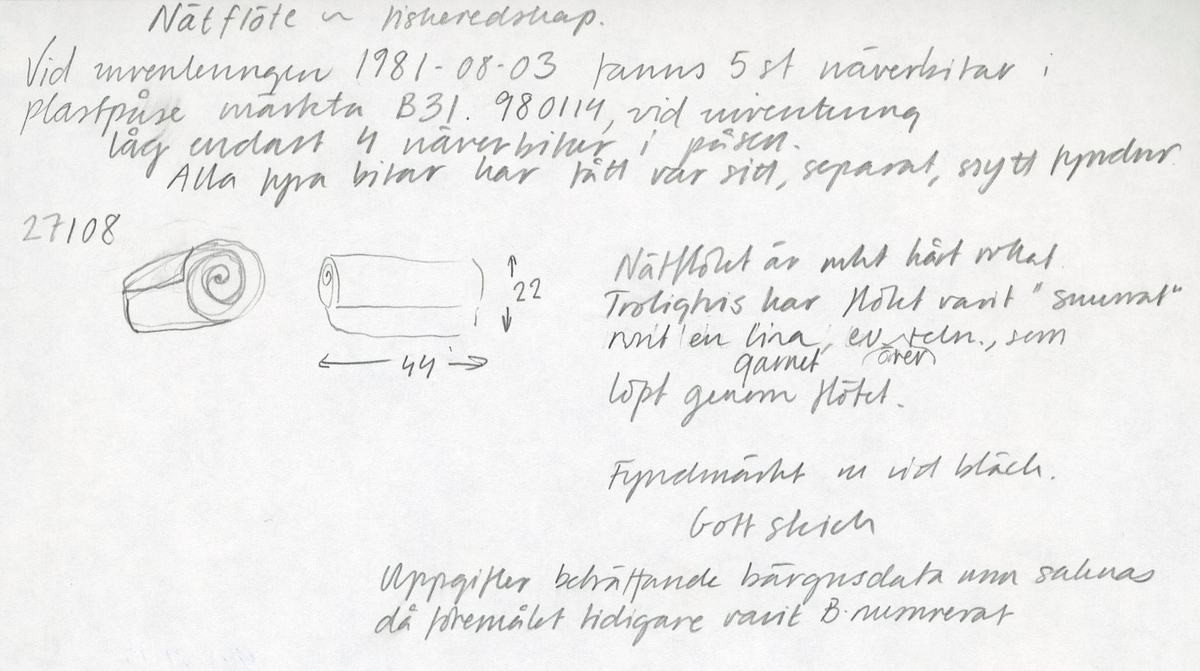 Nätflöte ~ fiskeredskap.
Vid inventeringen 1981-08-03 fanns 5 st näverbitar i
plastpåse märkta B31. 980114, vid inventering
låg endast 4 näverbitar i påsen.
Alla fyra bitar har fått var sitt, separat, nytt fyndnr
27108
22
44
Nätflötet är mkt hårt rullat
Troligtvis har flötet varit "snurrat"
runt en lina, ev. teln., som
garnet över
löpt genom flötet.
Fyndmärkt m vid bläck.
Gott skick
Uppgifter beträffande bärgnsdata mm saknas
då föremålet tidigare varit B-numrerat